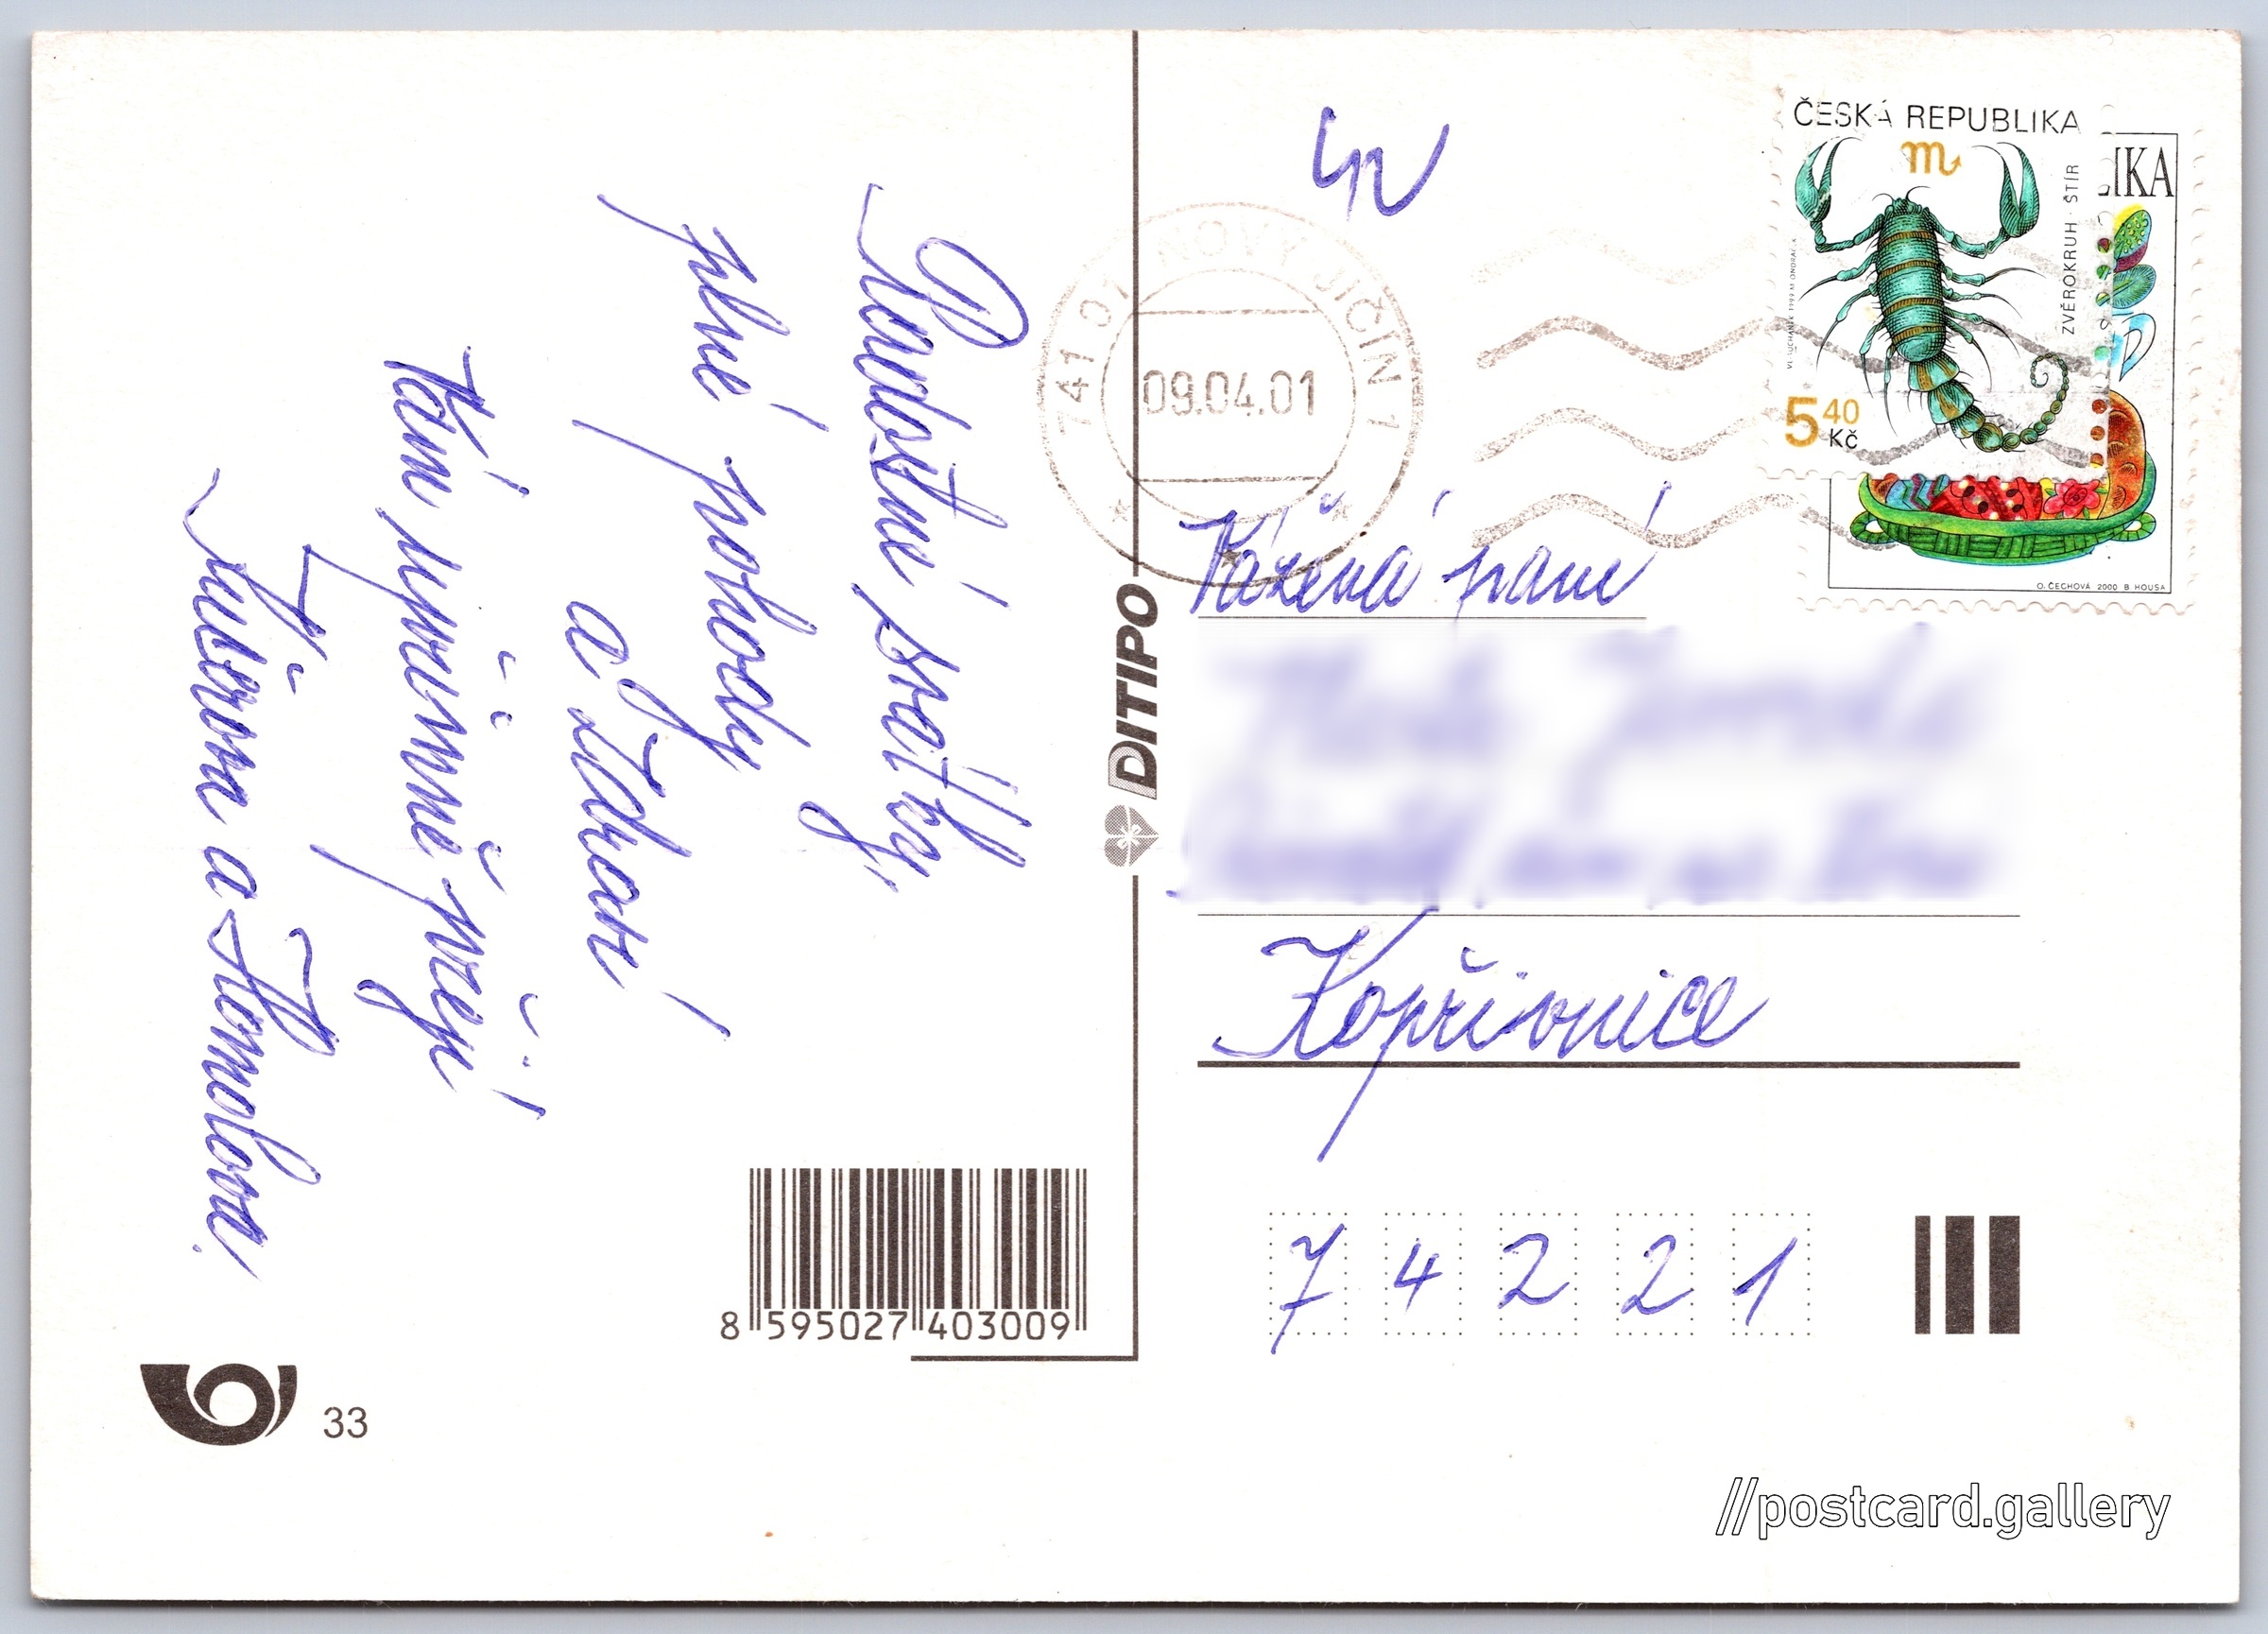 Radostné svátky,
plné pohody
a zdraví
Vám upřímně přeji
a Homolova.
ČESKÁ REPUBLIKA
ZVĚROKRUH · ŠTÍR
5 40
Kč
IKA
O. ČECHOVÁ 2000 B HOUSA
741 01 NOVÝ JIČÍN 1
09.04.01
Vážená paní
Kopřivnice
74221
DITIPO
8 595027 403009
33
//postcard.gallery